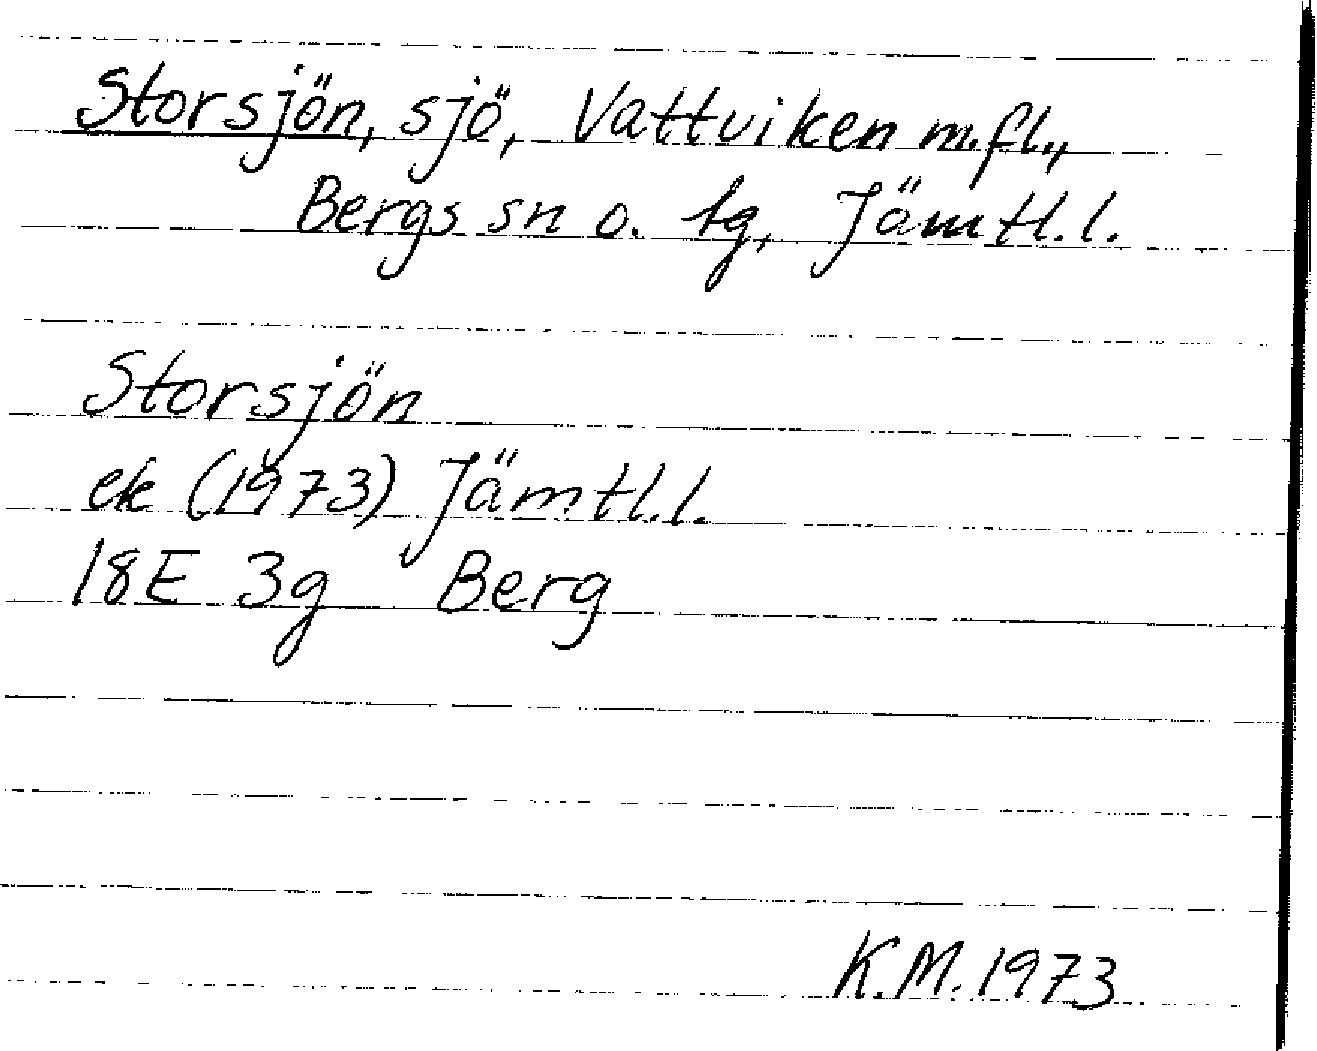 Storsjön, sjö, Vattviken m.fl.,
Bergs sn o. tg, Jämtl.l.
Storsjön
ek (1973) Jämtl.l.
18E 3g Berg
K.M. 1973